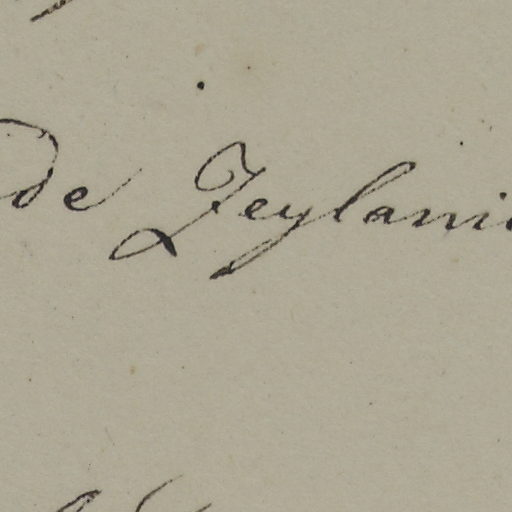 de Zeylani